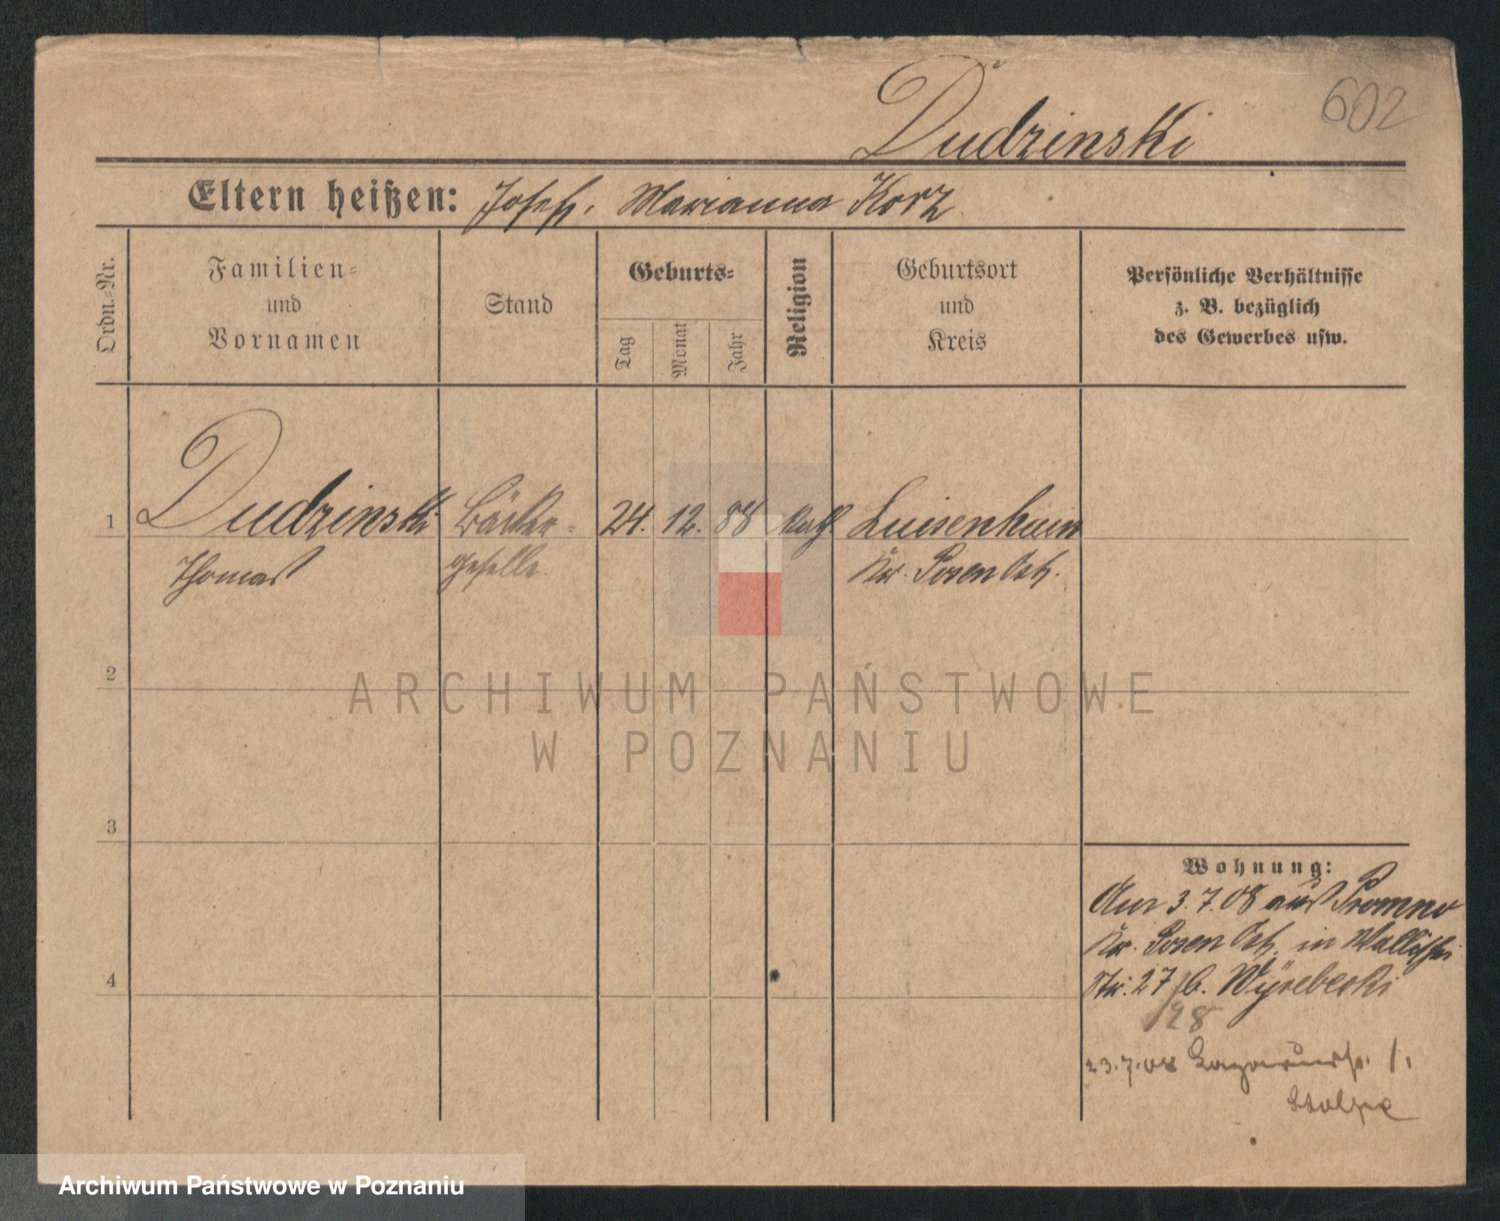 602
Dudzinski
Eltern heißen: Josef, Marianna Korz
Ordn.-Nr.
Familien-
und
Vornamen
Stand
Geburts-
Tag
Monat
Jahr
Religion
Geburtsort
und
Kreis
Persönliche Verhältnisse
z. B. bezüglich
des Gewerbes usw.
1
Dudzinski Bäcker- 24. 12. 88 kath. Luisenhain
Thomas geselle Kr. Posen Ost.
2
ARCHIWUM PAŃSTWOWE
W POZNANIU
3
Wohnung:
Am 3.7.08 aus Promno
Kr. Posen Ost, in Wallischei
Str. 27 b.
/28
4
23.7.08
Archiwum Państwowe w Poznaniu